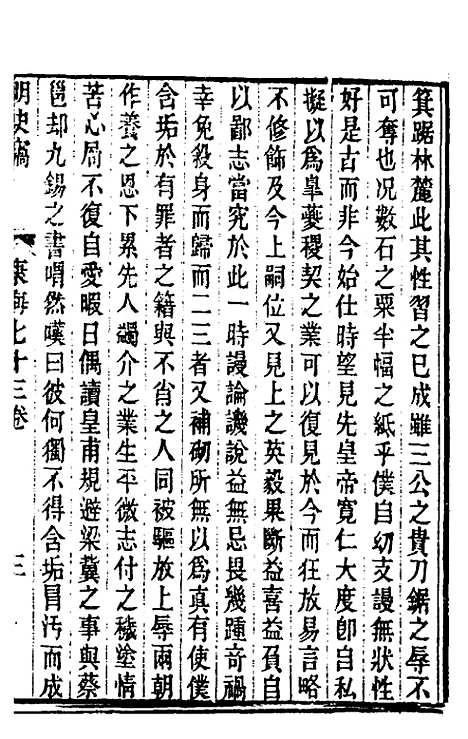 箕踞林麓此其性習之已成雖三公之貴刀鋸之辱不
可奪也况數石之粟半幅之紙乎僕自幼支謾無狀性
好是古而非今始仕時望見先皇帝寛仁大度卽自私
擬以爲皐夔稷契之業可以復見於今而狂放易言略
不修飾及今上嗣位又見上之英毅果斷益喜益負自
以鄙志當究於此一時謾論譏說益無忌畏幾踵奇禍
幸免殺身而歸而二三者又補砌所無以爲真有使僕
含垢於有罪者之籍與不肖之人同被驅放上辱兩朝
作養之恩下累先人蠲介之業生平微志付之穢塗情
苦心局不復自愛暇日偶讀皇甫規避梁冀之事與蔡
邕却九錫之書喟然嘆曰彼何獨不得含垢冒汚而成
明史竊
康海七十三卷
三